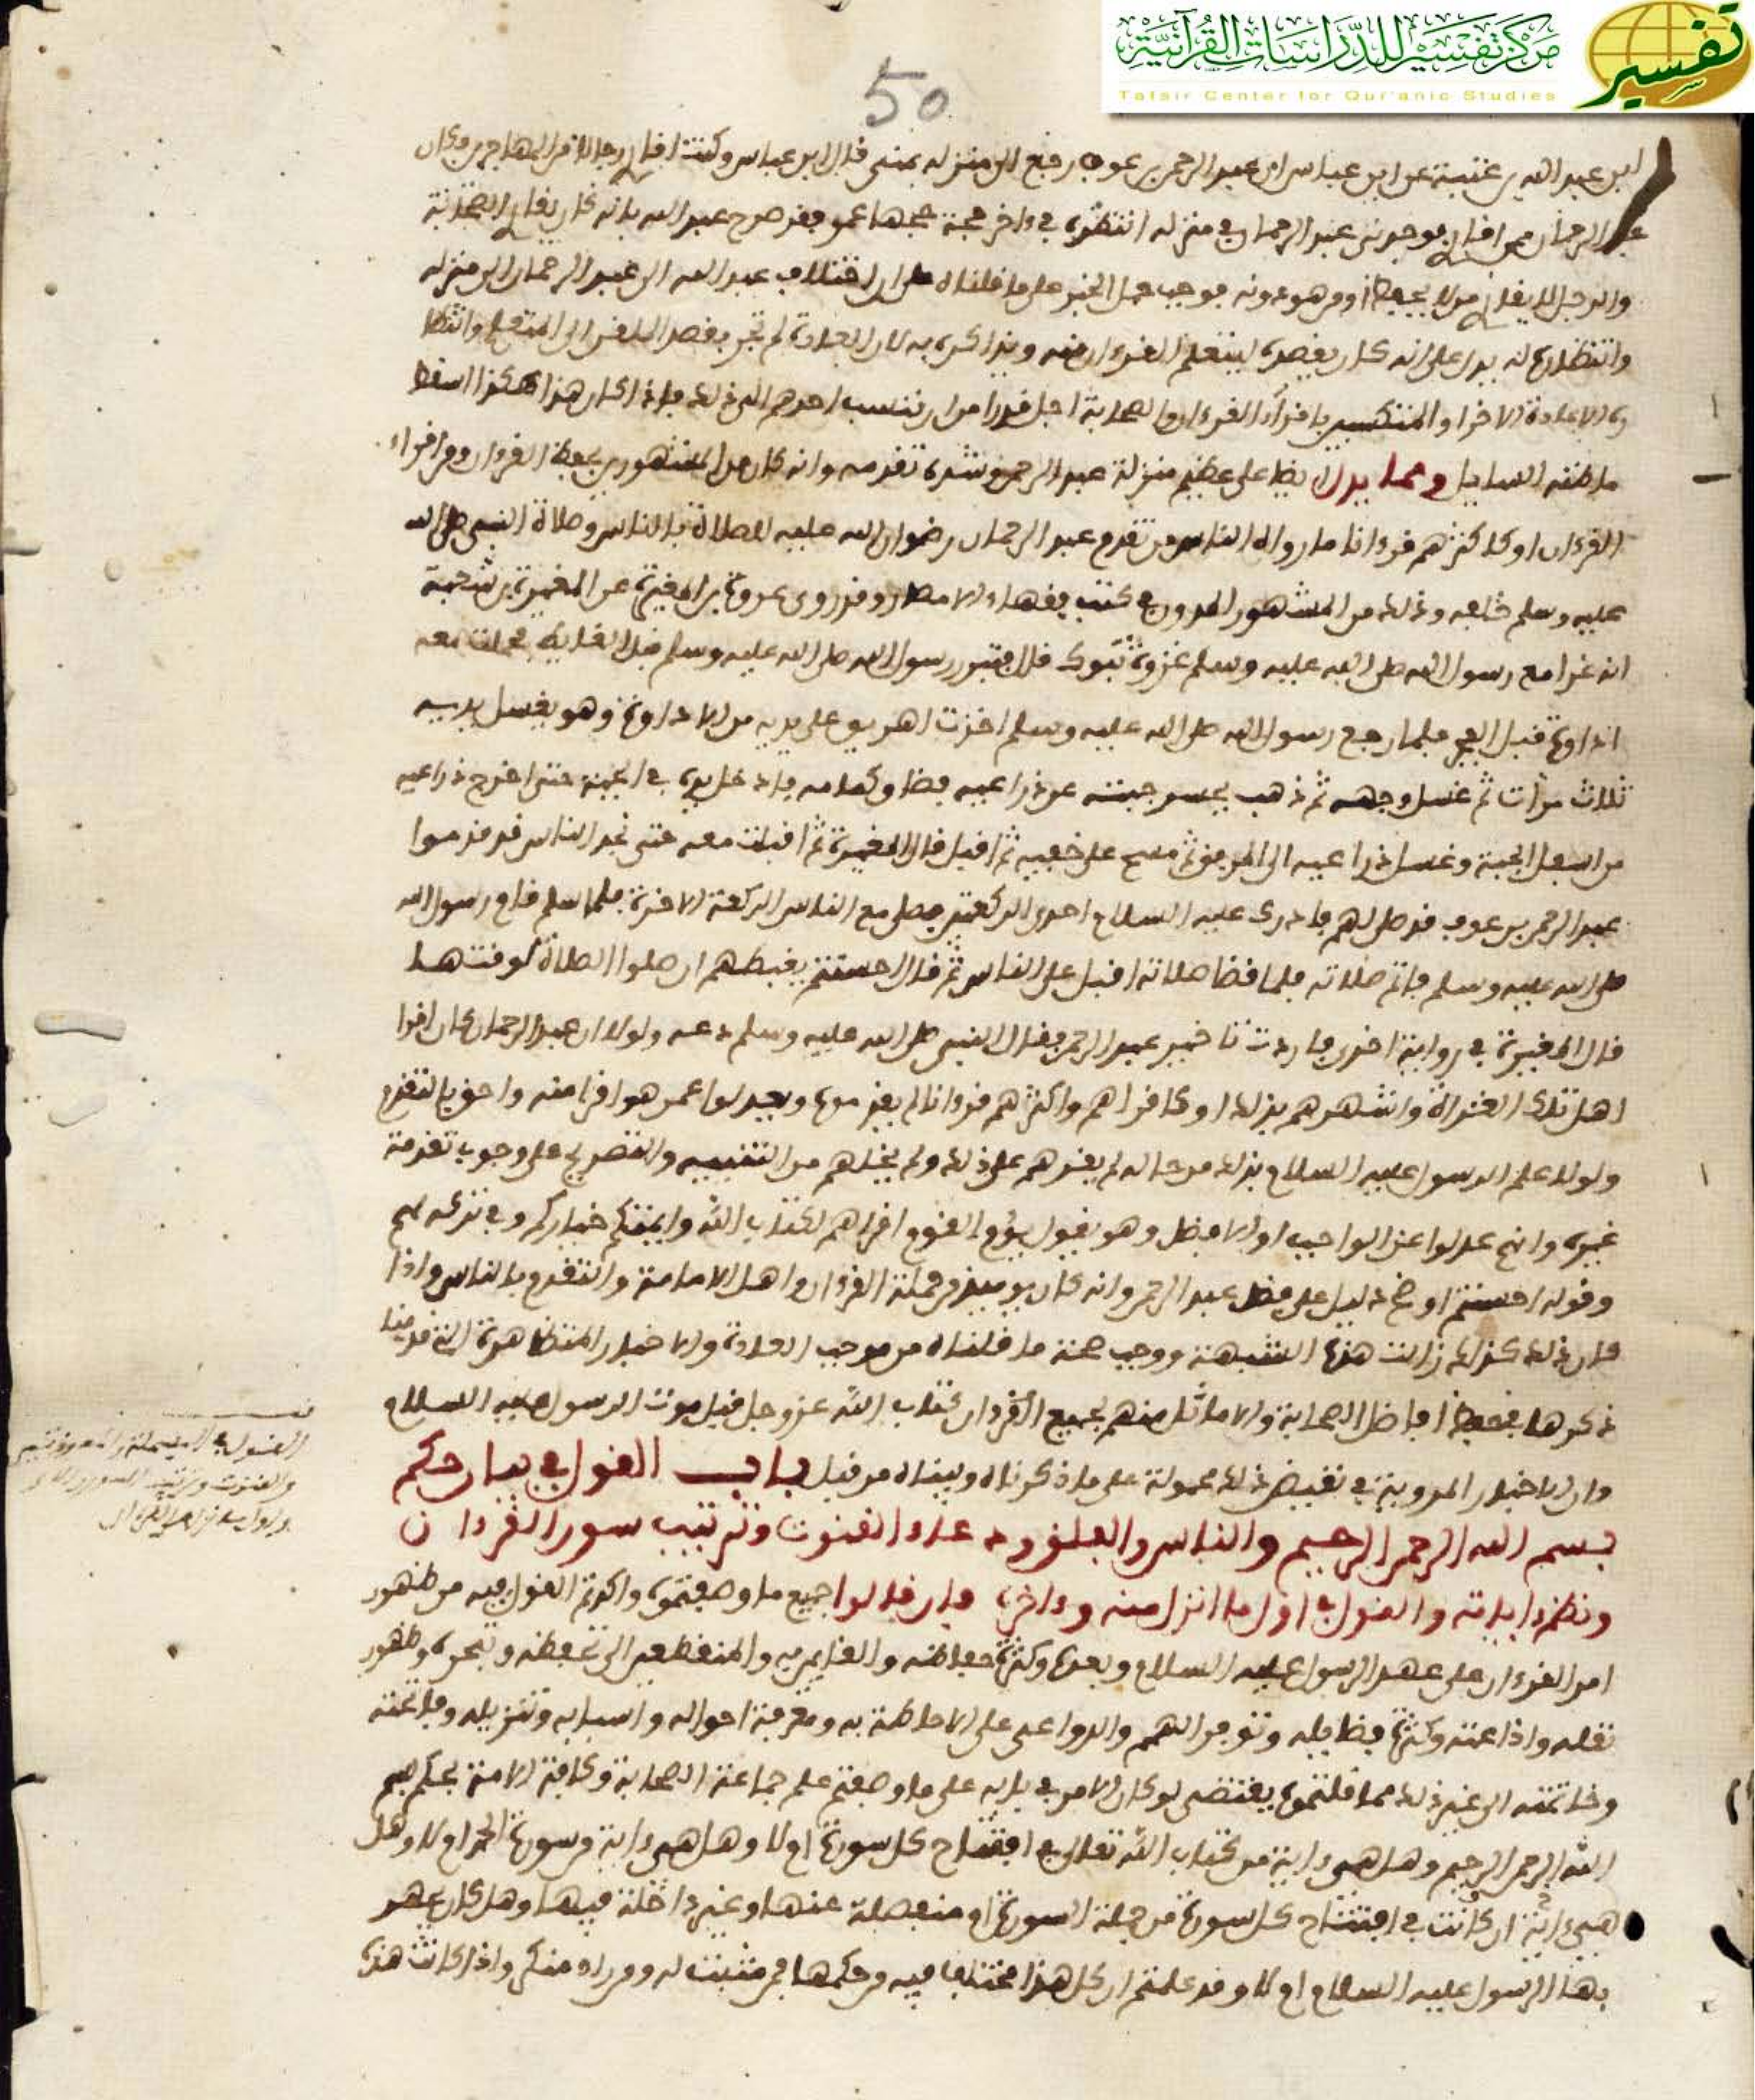 مركز تفسير للدراسات القرآنية
تفسير
Tafsir Center for Qur'anic Studies
50
ابن عبد الله بن عتبة عن ابن عباس ان عبد الرحمن بن عوف رجع الى منزله بمنى قال ابن عباس وكنت اقرى رجالا من المهاجرين وكان
عبد الرحمان ممن اقرى فوجدني عبد الرحمان في منزله انتظره في ءاخر حجة حجها عمر فقد صرح عبد الله بانه كان يقرى الصحابة
والرجل لا يقرى من لا يحفظ او من هو دونه فوجب حمل الخبر على ما قلناه على ان اختلاف عبد الله الى عبد الرحمان الى منزله
وانتظاره له يدل على انه كان يقصده ليتعلم القرءان منه ويذاكره به لان العادة لم تجر بقصد الملقن الى المتعلم وانتظا
ره الاعادة الاخرا والمتكسبين باقراء القرءان والصحابة اجل قدرا من ان تنسب احدهم الى ذلك فاذا كان هذا هكذا سقط
ما ظنه السايل ومما يدل ايضا على عظيم منزلة عبد الرحمن وشدة تقدمه وانه كان من المشهورين بحفظ القرءان ومن اقراء
القرءان او كاكثرهم قرءانا ما رواه الناس من تقدم عبد الرحمان رضوان الله عليه للصلاة بالناس وصلاة النبي صلى الله
عليه وسلم خلفه وذلك من المشهور المدون في كتب فقهاء الامصار وقد روى عروة بن المغيرة عن المغيرة بن شعبة
انه غزا مع رسول الله صلى الله عليه وسلم غزوة تبوك قال فتبرز رسول الله صلى الله عليه وسلم قبل الغايط فحملت معه
اداوة قبل الفجر فلما رجع رسول الله صلى الله عليه وسلم اخذت اهريق على يديه من الاداوة وهو يغسل يديه
ثلاث مرات ثم غسل وجهه ثم ذهب يحسر جبته عن ذراعيه فضاق كمامه فادخل يده في الجبة حتى اخرج ذراعيه
من اسفل الجبة وغسل ذراعيه الى المرفق ثم مسح على خفيه ثم اقبل قال المغيرة ثم اقبلت معه حتى نجد الناس قد قدموا
عبد الرحمن بن عوف قد صلى لهم فادرك عليه السلام احدى الركعتين فصلى مع الناس الركعة الاخرة فلما سلم قام رسول الله
صلى الله عليه وسلم فاتم صلاته فلما قضا صلاته اقبل على الناس ثم قال احسنتم يغبطهم ان صلوا الصلاة لوقتها
قال المغيرة في رواية اخرى فاردت تاخير عبد الرحمن فقال النبي صلى الله عليه وسلم دعه ولولا ان عبد الرحمان كان اقرا
اهل تلك الغزاة واشهرهم بذلك او كاقراهم واكثرهم قرءانا لم يقدموه ويعدلوا عمن هو اقرا منه واحق بالتقدم
ولولا علم الرسول عليه السلام بذلك من حاله لم يقرهم على ذلك ولم يخلهم من التنبيه والتصريح على وجوب تقدمة
غيره وانهم عدلوا عن الواجب او الافضل وهو يقول يؤم القوم اقراهم لكتاب الله وايمتكم خياركم وفي تركه لهم
وقوله احسنتم اوضح دليل على فضل عبد الرحمن وانه كان يوميذ من جملة القرءان واهل الامامة والتقدم بالناس واذا
كان ذلك كذلك زالت هذه الشبهة ووجب صحة ما قلناه من موجب العادة والاخبار المتظاهرة التي قدمنا
ذكرها بحفظ افاضل الصحابة والاماثل منهم لجميع القرءان كتاب الله عز وجل قبل موت الرسول عليه السلام
وان الاخبار المروية في نقيض ذلك محمولة على ما ذكرناه وبيناه من قبل باب القول في بيان حكم
بسم الله الرحمن الرحيم والناس والفلق ودعاء القنوت وترتيب سور القرءان
ونظم ءاياته والقول في اول ما انزل منه وءاخره فان قالوا جميع ما وصفتموه واكدتم القول فيه من ظهور
امر القرءان على عهد الرسول عليه السلام وبعده وكثرة حفاظه والقايمين به والمنقطعين الى تحفظه وتبحره وظهور
نقله واذاعته وكثرة فضايله وتوفر الهمم والدواعي على الاحاطة به ومعرفة احواله واسبابه وتنزيله وفاتحته
وخاتمته الى غير ذلك مما قلتموه يقتضي لو كان الامر في بابه على ما وصفتم علم جماعة الصحابة وكافة الامة بحكم بسم
الله الرحمن الرحيم وهل هي ءاية من كتاب الله تعالى في افتتاح كل سورة ام لا وهل هي ءاية من سورة الحمد ام لا وهل
هي ءاية ان كانت في افتتاح كل سورة من جملة السورة ام منفصلة عنها وغير داخلة فيها وهل كان يجهر
بها الرسول عليه السلام ام لا وقد علمتم ان كل هذا مختلف فيه وحكمها فمن مثبت له ومن راد منكر واذا كانت هذه
القول في البسملة والمعوذتين
والقنوت وترتيب السور والاي
واول ما نزل من القرءان